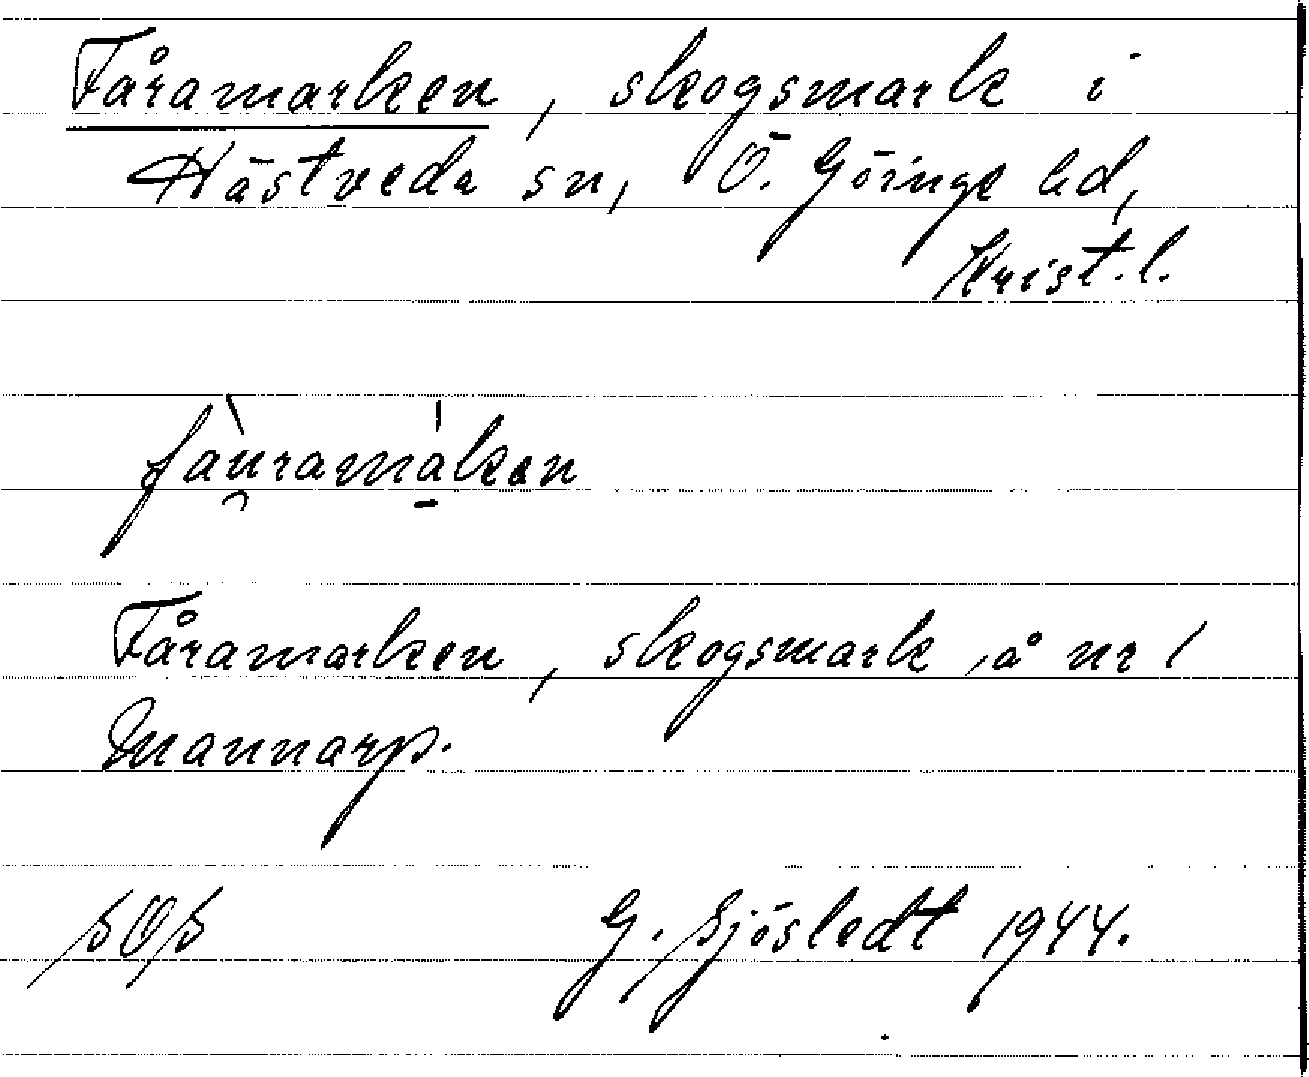 Fåramarken, skogsmark i
Hästveda sn, Ö. Göinge hd,
Krist. l.
fàu̯ramá̱ken
Fåramarken, skogsmark å nr 1
Mannarp.
SOS G. Sjöstedt 1944.